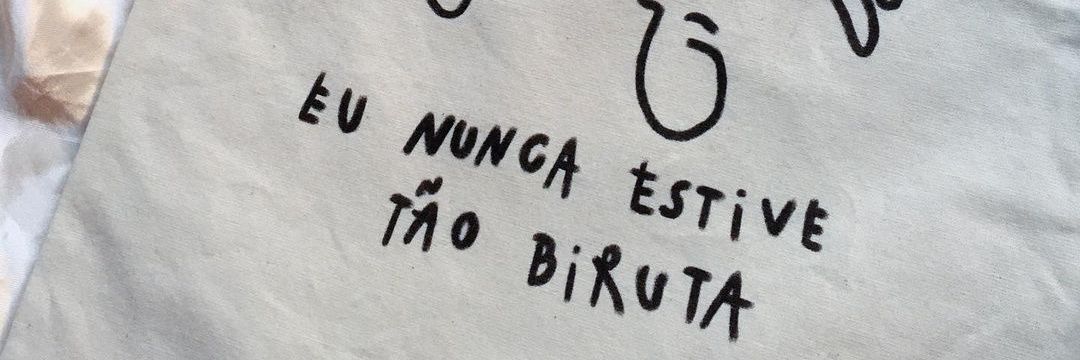 EU NUNCA ESTIVE
TÃO BIRUTA